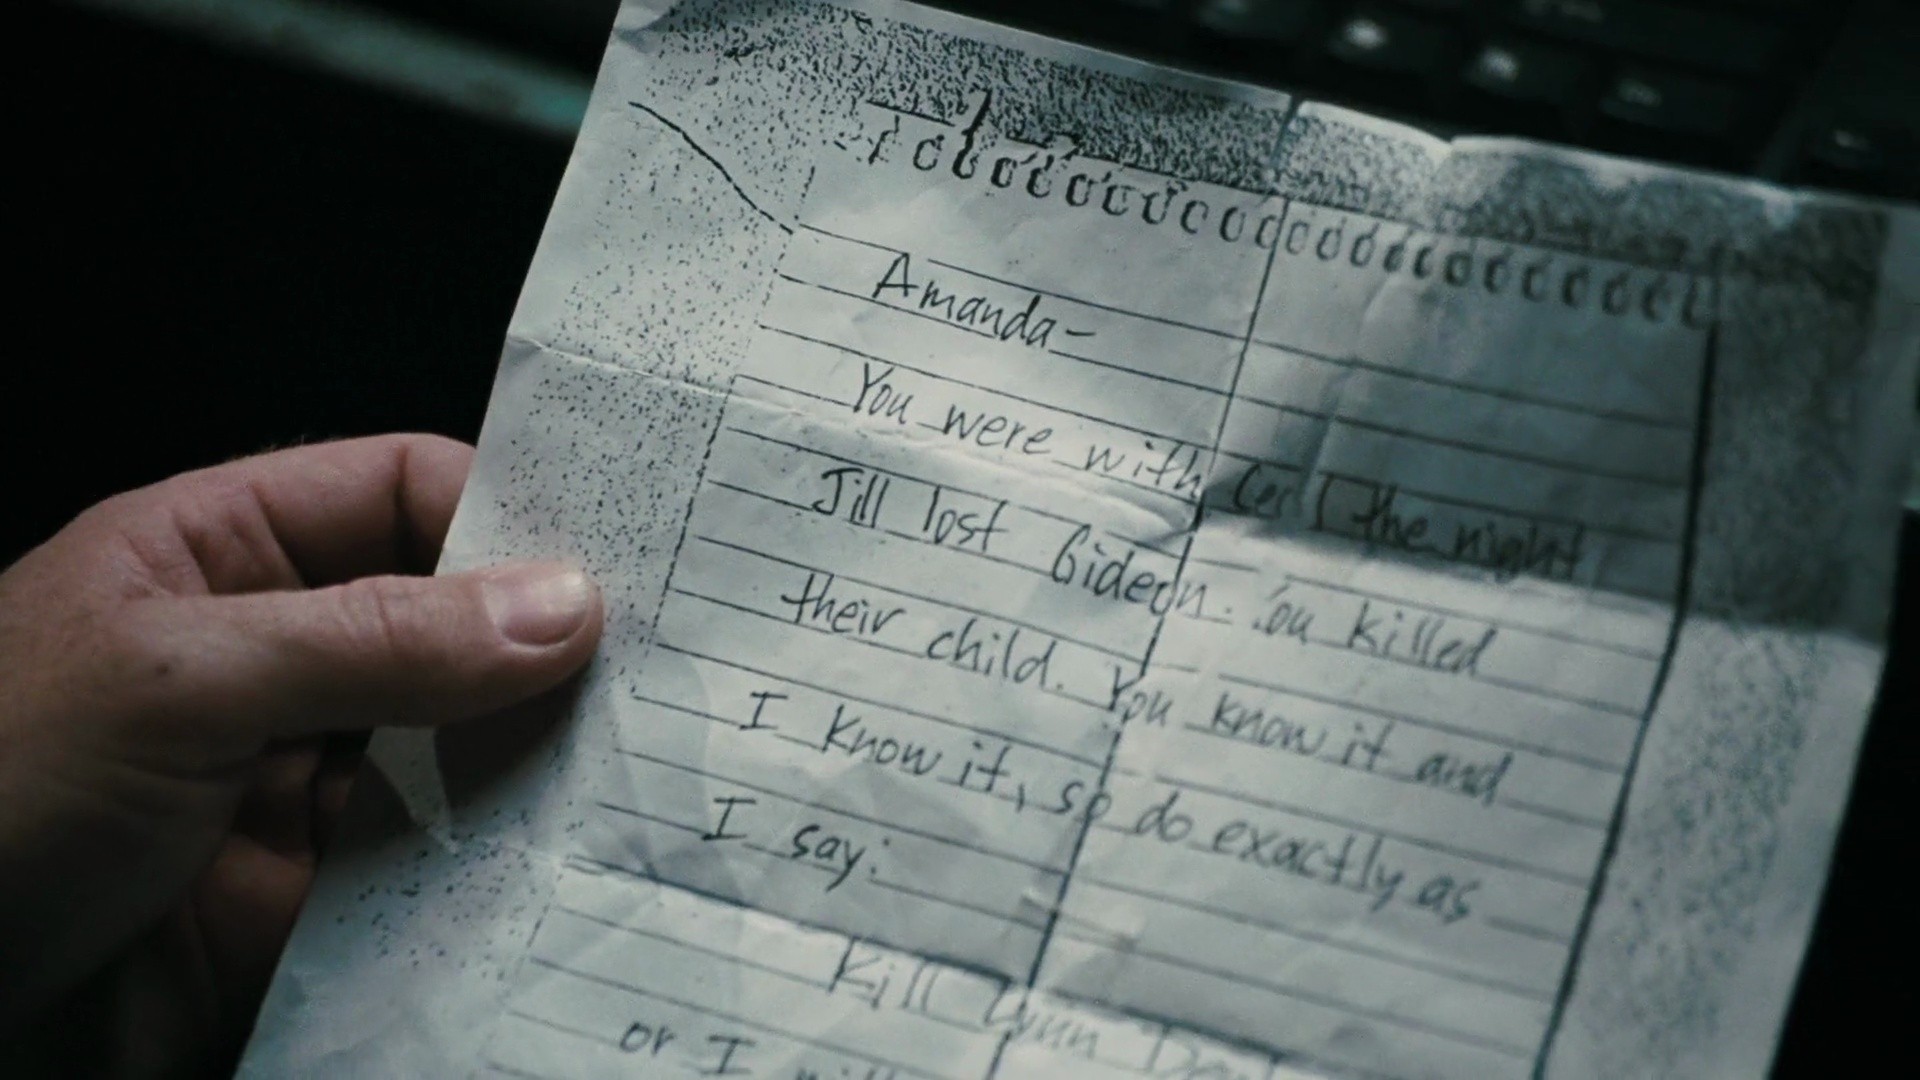 Amanda-
You were with Cecil the night
Jill lost Gideon. You killed
their child. You know it and
I know it, so do exactly as
I say:
Kill Lynn
or I will